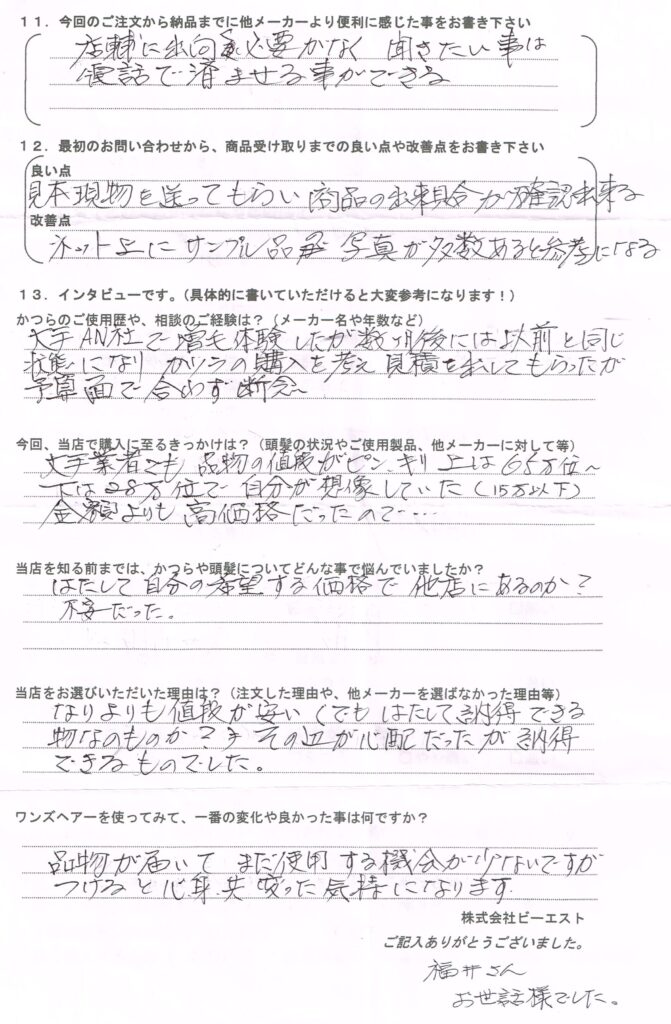 11．今回のご注文から納品までに他メーカーより便利に感じた事をお書き下さい
店輔に出向く必要がなく 聞きたい事は
電話で済ませる事ができる
12．最初のお問い合わせから、商品受け取りまでの良い点や改善点をお書き下さい
良い点
見本現物を送ってもらい 商品の出来具合が確認出来る
改善点
ネット上にサンプル品 写真が多数あると参考になる
13．インタビューです。（具体的に書いていただけると大変参考になります！）
かつらのご使用歴や、相談のご経験は？（メーカー名や年数など）
大手AN社で増毛体験したが数ヶ月後には以前と同じ
状態になり カツラの購入を考え 見積を出してもらったが
予算面で合わず断念〜
今回、当店で購入に至るきっかけは？（頭髪の状況やご使用製品、他メーカーに対して等）
大手業者でも 品物の値段がピンキリ 上は65万位〜
下は28万位で 自分が想像していた（15万以下）
金額よりも高価格だったので‥‥
当店を知る前までは、かつらや頭髪についてどんな事で悩んでいましたか？
はたして自分の希望する価格で 他店にあるのか？
不安だった。
当店をお選びいただいた理由は？（注文した理由や、他メーカーを選ばなかった理由等）
なりよりも値段が安い くでも はたして納得できる
物なのものか？ その辺が心配だったが納得
できるものでした。
ワンズヘアーを使ってみて、一番の変化や良かった事は何ですか？
品物が届いて まだ使用する機会が少ないですが
つけると心身共 変った気持になります
株式会社ビーエスト
ご記入ありがとうございました。
福井さん
お世話様でした。